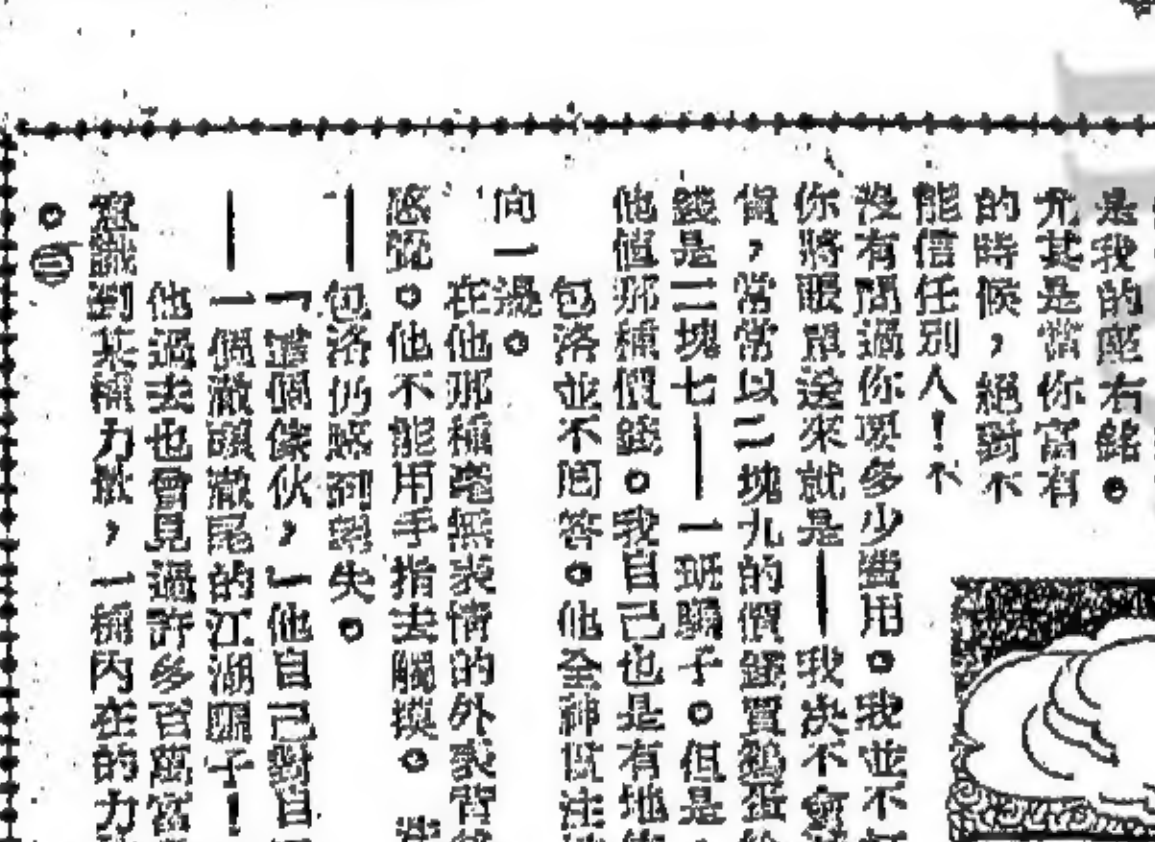 是我的座右銘。
尤其是當你富有
的時候，絕對不
能信任別人！不
沒有問過你要多少費用。我並不
你將賬單送來就是——我決不會
價，常常以二塊九的價錢買鷄蛋
錢是二塊七——一班騙子。但是
他值那種價錢。我自己也是有地
包洛並不回答。他全神貫注
向一邊。
在他那種毫無表情的外表背
感覺。他不能用手指去觸摸。
——包洛仍感到
失。
「這個傢伙，」他自己對自
——一個澈頭澈尾的江湖騙子！
他過去也曾見過許多百萬富
意識到某種力
，一種內在的力
。㊂